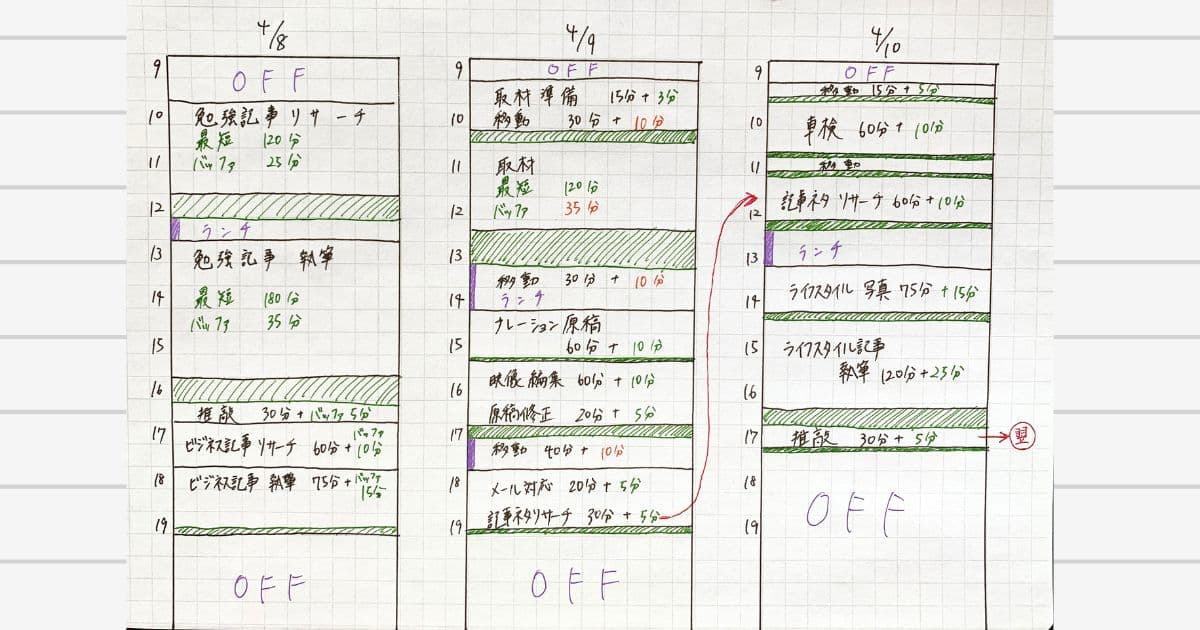 4/8
9
OFF
10
勉強記事リサーチ
最短 120分
11
バッファ 25分
12
ランチ
13
勉強記事 執筆
14
最短 180分
バッファ 35分
15
16
推敲 30分+バッファ5分
17
ビジネス記事リサーチ 60分+バッファ10分
18
ビジネス記事 執筆 75分+バッファ15分
19
OFF
4/9
9
OFF
取材準備 15分+3分
10
移動 30分+10分
11
取材
最短 120分
12
バッファ 35分
13
移動 30分+10分
14
ランチ
ナレーション原稿
15
60分+10分
16
映像編集 60分+10分
原稿修正 20分+5分
17
移動 40分+10分
18
メール対応 20分+5分
19
記事ネタリサーチ 30分+5分
OFF
4/10
9
OFF
移動 15分+5分
10
車検 60分+10分
11
移動
記事ネタリサーチ 60分+10分
12
13
ランチ
14
ライフスタイル 写真 75分+15分
15
ライフスタイル記事
執筆 120分+25分
16
17
推敲 30分+5分
翌
18
OFF
19